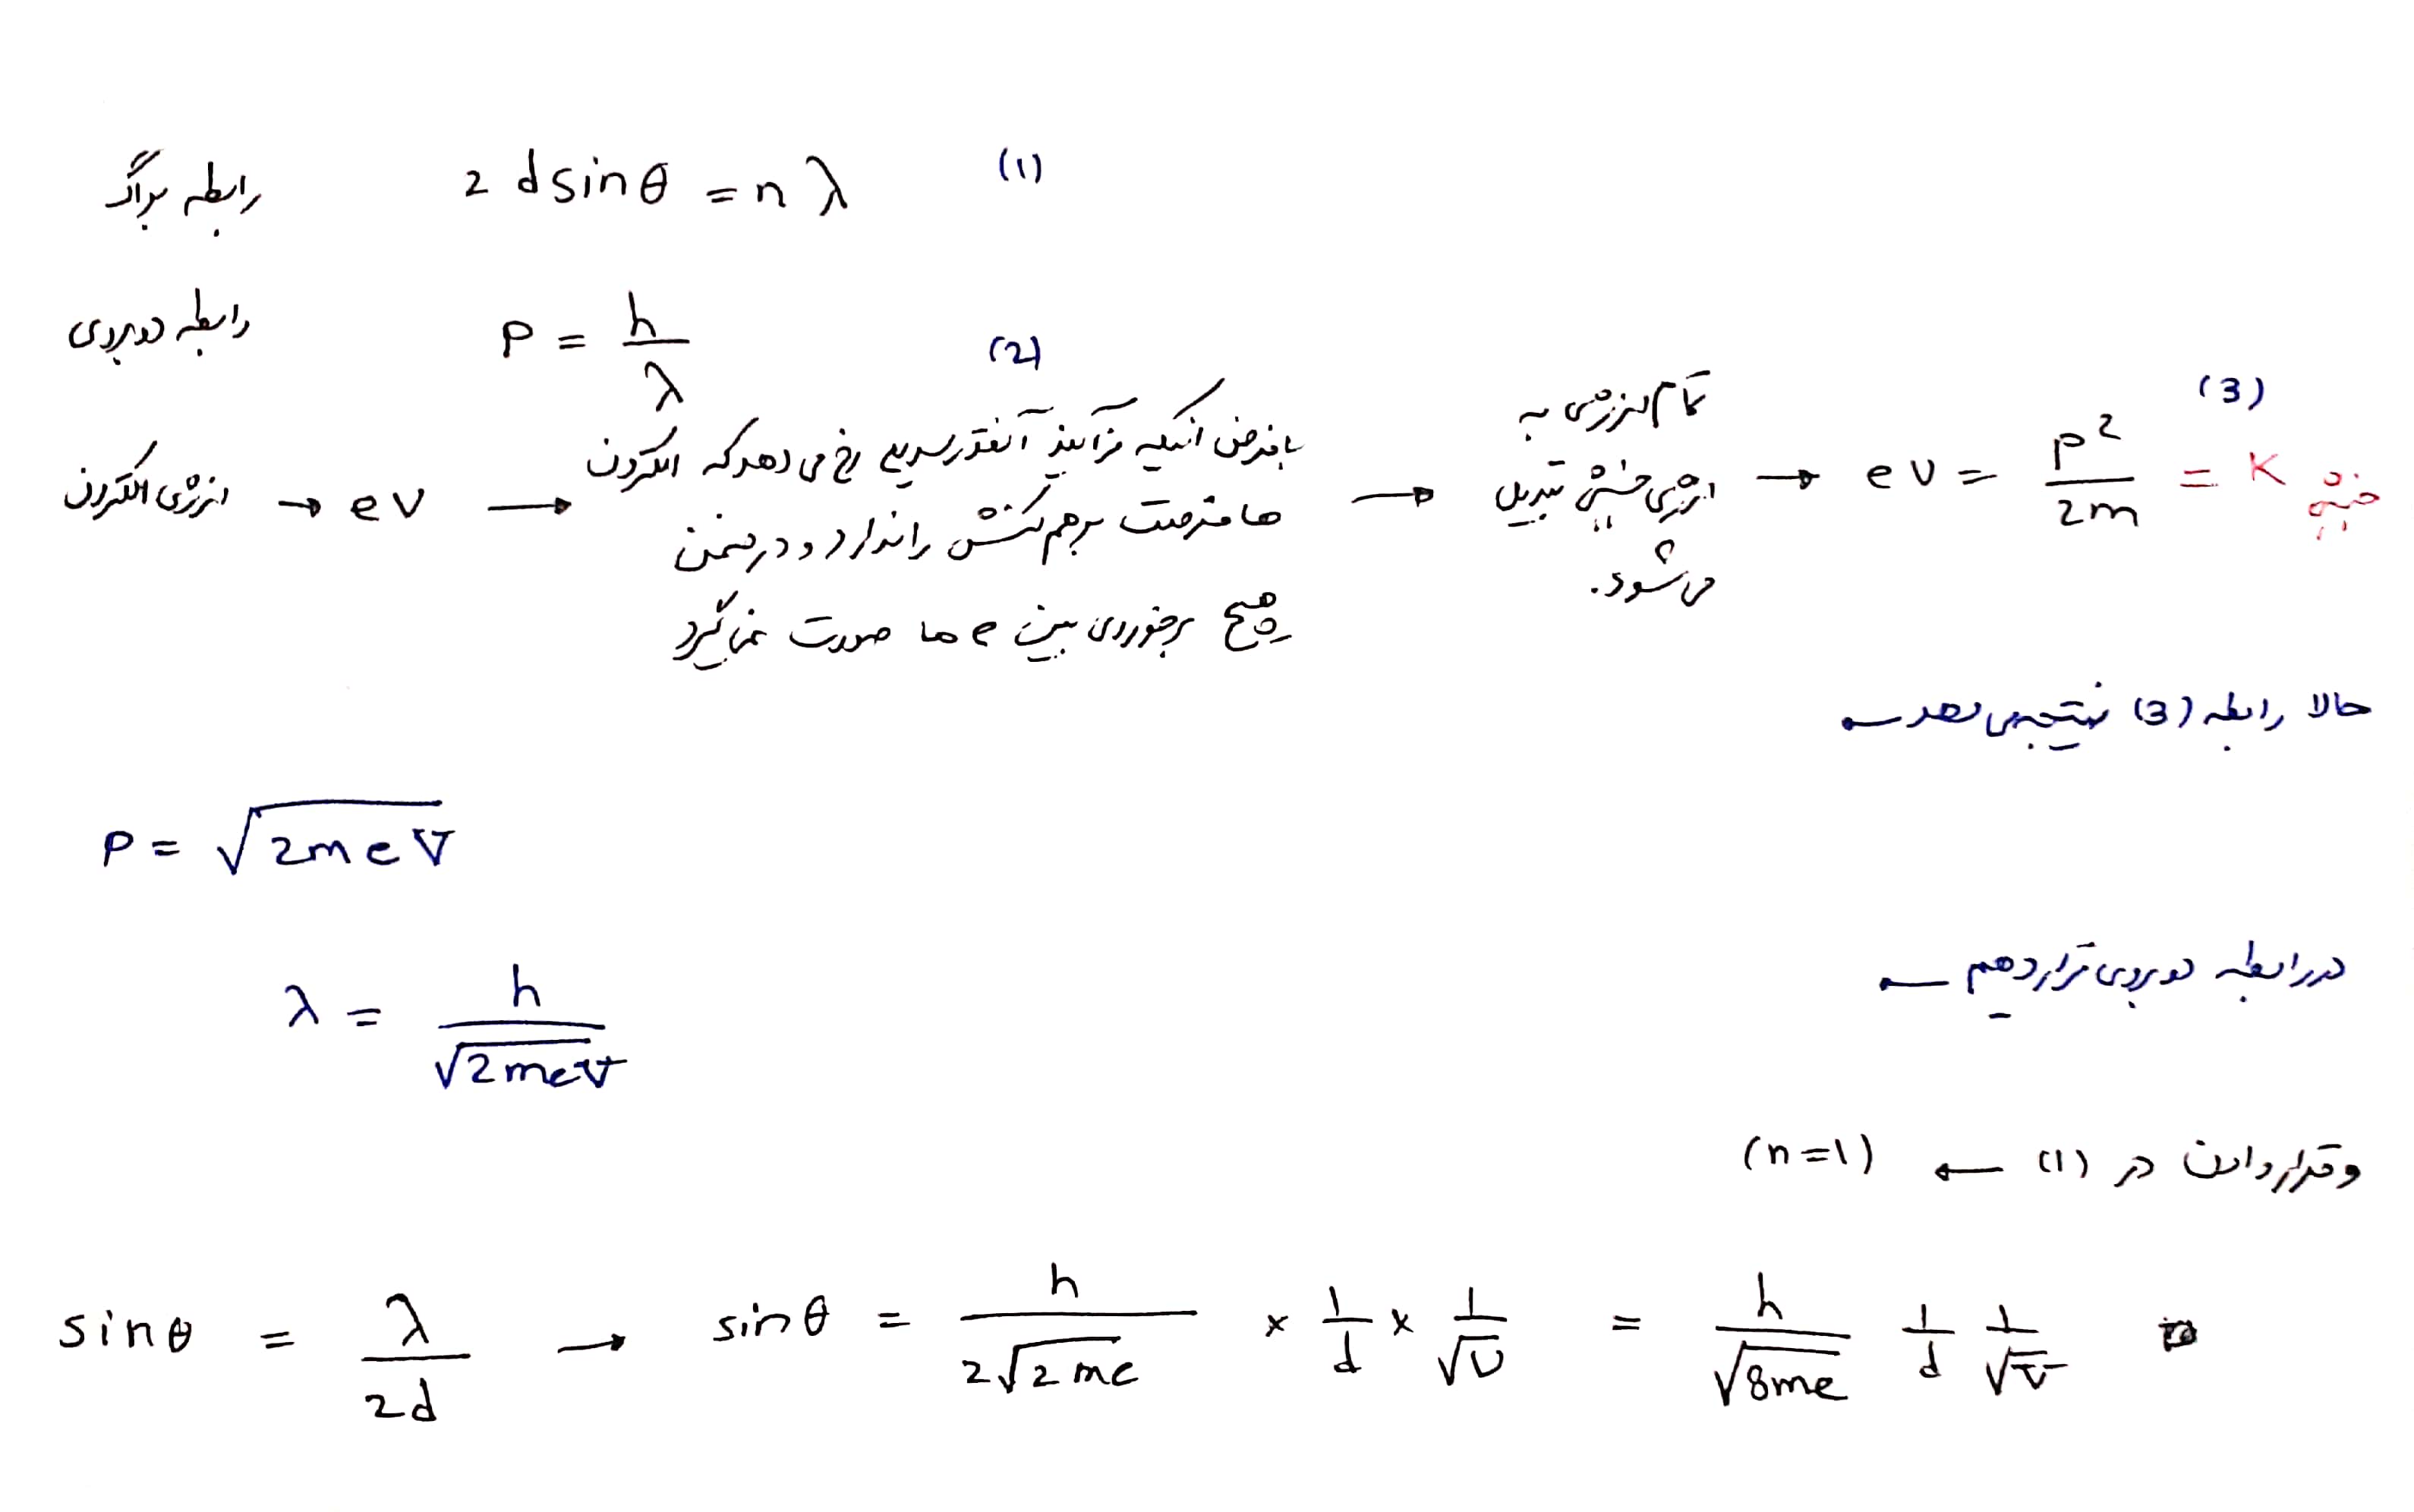 رابطه براگ 2 d sin θ = n λ (1)
رابطه دوبروی P = h/λ (2)
انرژی الکترون → eV → با فرض اینکه فرآیند آنقدر سریع رخ می دهد که الکترون
ها فرصت برهم کنش را ندارد و در ضمن
هیچ برخوردی بین e ها صورت نمی گیرد
→ تمام انرژی به
انرژی جنبشی تبدیل
می شود.
→ eV = P²/2m = K جنبشی (3)
حالا رابطه (3) نتیجه می دهد ←
P = √2meV
در رابطه دوبروی قرار دهیم ←
λ = h/√2meV
و قرار دادن در (1) ← (n=1)
sin θ = λ/2d → sin θ = h/2√2me × 1/d × 1/√V = h/√8me 1/d 1/√V